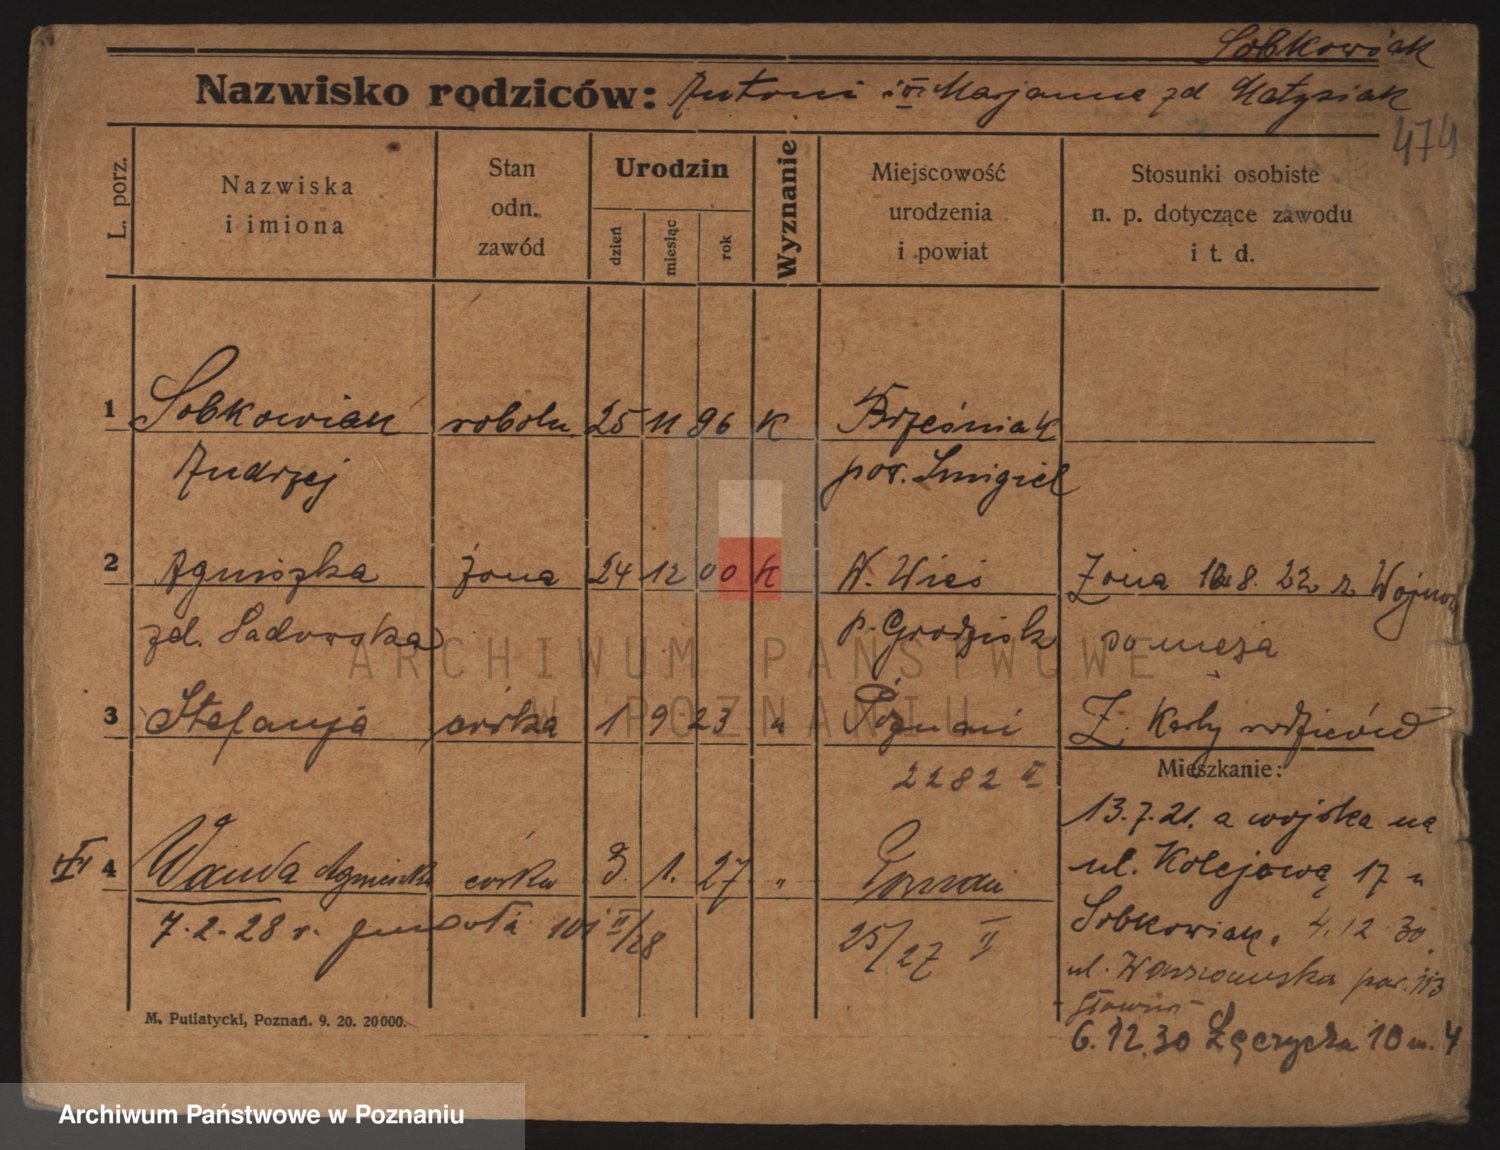 Sobkowiak
Nazwisko rodziców: Antoni i Marjanna zd Matysiak
474
L. porz.
Nazwiska i imiona
Stan odn. zawód
Urodzin
dzień
miesiąc
rok
Wyznanie
Miejscowość urodzenia i powiat
Stosunki osobiste n. p. dotyczące zawodu i t. d.
1 Sobkowiak robotn. 25 11 96 K Brześniak
Andrzej pow. Smigiel
2 Agniszka żona 24 12 00 K N. Wieś Żona 8. 22 r.
zd. Sadowska p. Grodzisk do męża
3 Stefanja córka 1 9 23 " Poznań Z. Karty rodziców
2282 II
Mieszkanie:
13.7.21. a wojska na
VI 4 Wanda Agnieszka córka 3. 1. 27 " Poznań
ul. Kolejową 17 u
7.2.28 r. zmarła 101 II/28 25/27 II
Sobkowiak, 4.12 30
ul. Warszawska par. 113
6.12.30 Łęczycka 10 m. 4
M. Putiatycki, Poznań. 9. 20. 20000.
ARCHIWUM PAŃSTWOWE
W POZNANIU
Archiwum Państwowe w Poznaniu